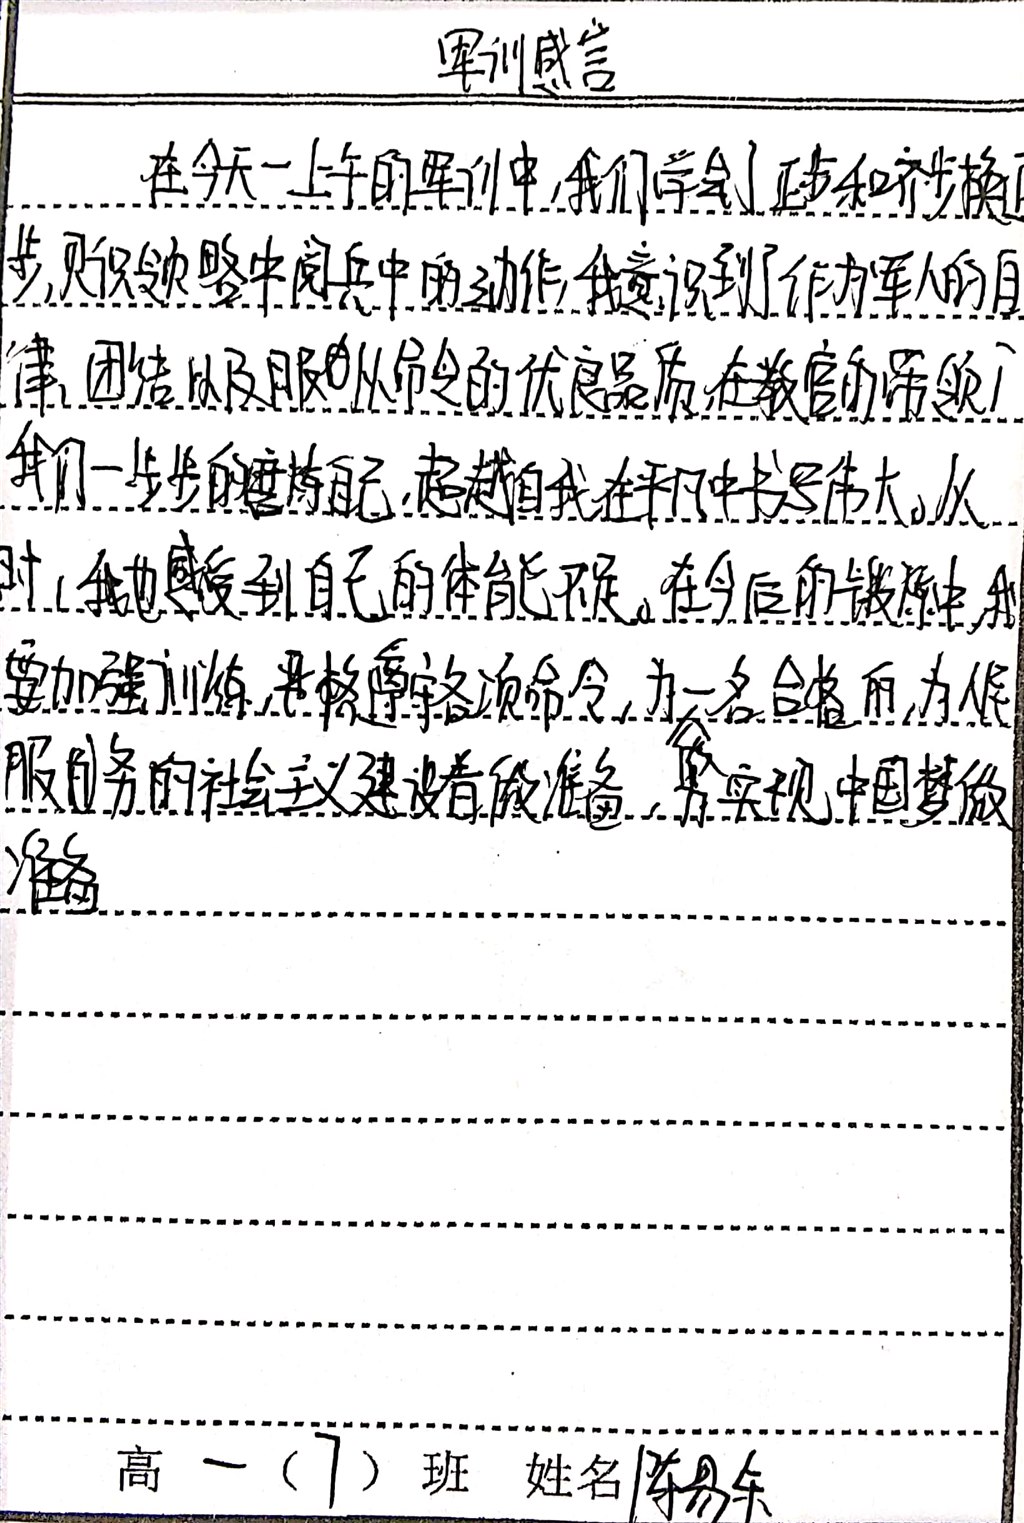 军训感言
在今天一上午的军训中,我们学会了正步和齐步换正
步,领略中阅兵中的动作,我意识到了作为军人的自
律、团结以及服从命令的优良品质,在教官的带领下
我们一步步的磨炼自己,超越自我在平凡中书写伟大。从
时,我也感受到自己的体能不足。在今后的锻炼中,我
要加强训练,严格遵守各项命令,为一名合格的,为人民
服务的社会主义建设者做准备,为实现中国梦做
准备
高一(7)班 姓名 陈易东